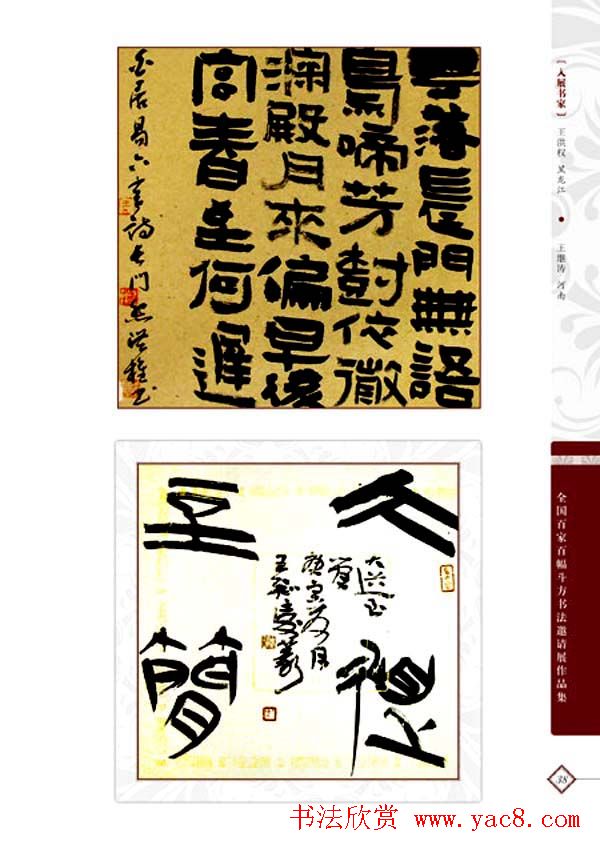 落長門無語
鳥啼芳樹依微
深殿月來偏早後
宮春至何遲
白居易六言詩長門怨洪權書
大道
至簡
庚寅夏月
【入展书家】
王洪权 黑龙江
王继涛 河南
全国百家百幅斗方书法邀请展作品集
38
书法欣赏 www.yac8.com